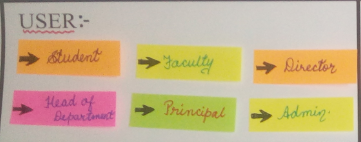 USER:-
Student
Faculty
Director
Head of
Department
Principal
Admin.